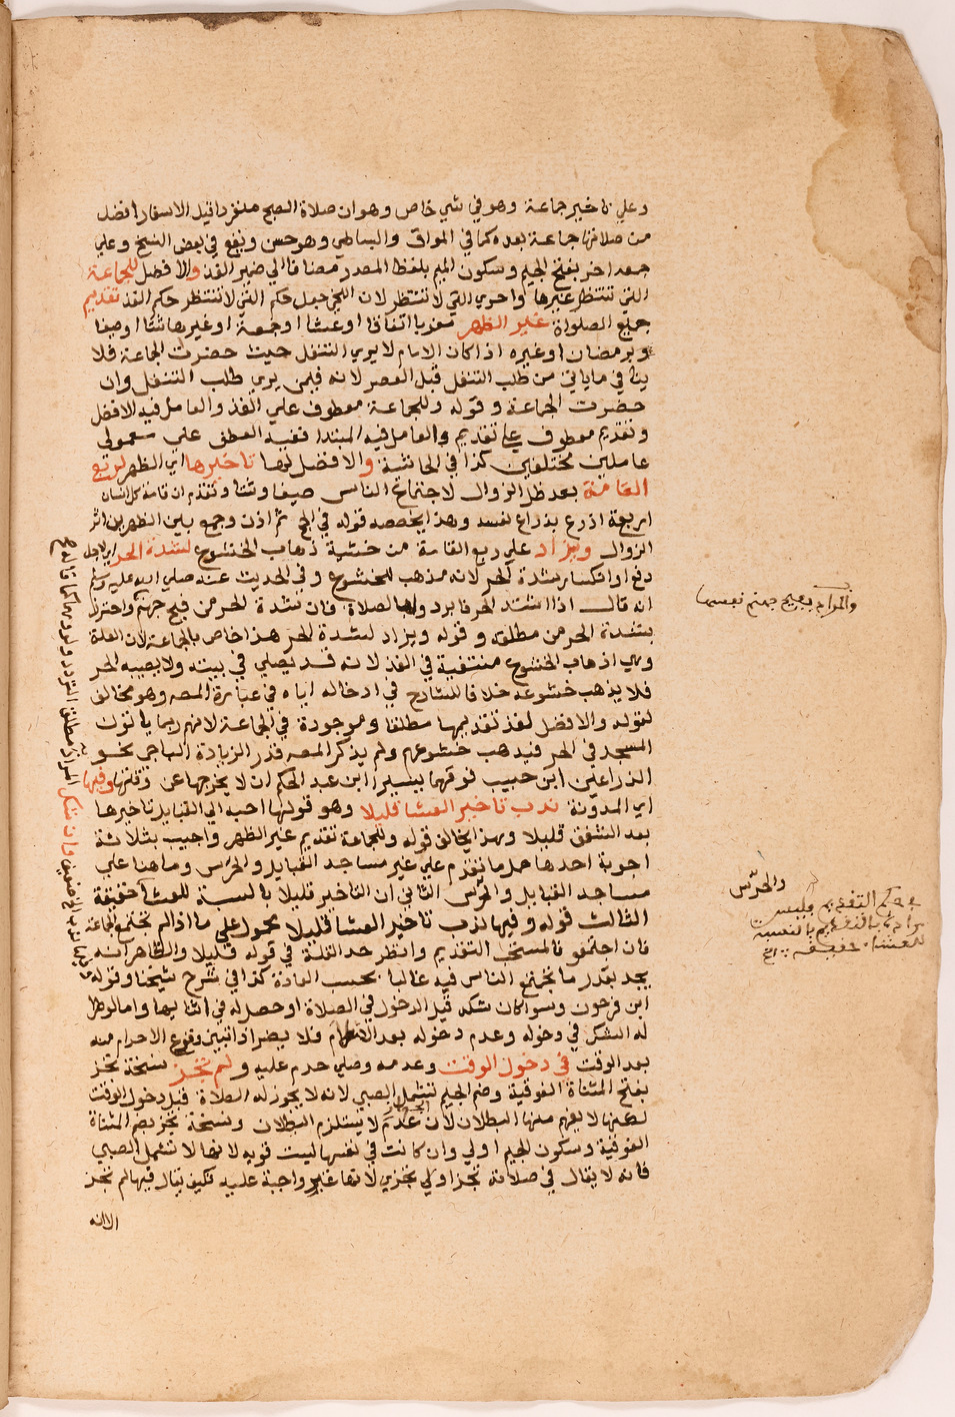 وعلي تاخير جماعة وهو في شي خاص وهو ان صلاة الصبح منفردا قبل الاسفار افضل
من صلاتها جماعة بعده كما في المواق والبساطي وهو حسن ويقع في بعض النسخ وعلي
جمعه اخر بفتح الجيم وسكون الميم بلفظ المصدر مضافا الي ضمير الفذ والافضل للجماعة
التي تنتظر غيرها واحري التي لا تنتظر لان اللخمي جعل حكم التي لا تنتظر حكم الفذ تقديم
جميع الصلواة غير الظهر مغربا اتفاقا او عشا او جمعة او غيرها شتا او صيفا
وبرمضان او غيره اذا كان الامام لا يري التنفل حيث حضرت الجماعة فلا
ينافي ما ياتي من طلب التنفل قبل العصر لانه فيمن يري طلب التنفل وان
حضرت الجماعة وقوله وللجماعة معطوف علي الفذ والعامل فيه الافضل
وتقديم معطوف علي تقديم والعامل فيه المبتدا ففيه العطف علي معمولي
عاملين مختلفين كذا في الحاشية والافضل لها تاخيرها اي الظهر لربع
القامة بعد ظل الزوال لاجتماع الناس صيفا وشتا وتقدم ان قامة كل انسان
اربعة اذرع بذراع نفسه وهذا يخصصه قوله في الحج ثم اذن وجمع بين الظهرين اثر
الزوال ويزاد علي ربع القامة من خشية ذهاب الخشوع لشدة الحر اي لاجل
دفع او انكسار شدة الحر لانه مذهب للخشوع وفي الحديث عنه صلي الله عليه وسلم
انه قال اذا اشتد الحر فابردوا بالصلاة فان شدة الحر من فيح جهنم واحترز
بشدة الحر من مطلقه وقوله ويزاد لشدة الحر هذا خاص بالجماعة لان العلة
وهي اذهاب الخشوع منتفية في الفذ لانه قد يصلي في بيته ولا يصيبه الحر
فلا يذهب خشوعه خلافا للشارح في ادخاله اياه في عبارة المصه وهو مخالف
لقوله والافضل لفذ تقديمها مطلقا وموجودة في الجماعة لانهم ربما ياتون
المسجد في الحر فيذهب خشوعهم ولم يذكر المصه قدر الزيادة الباجي نحو
الذراعين ابن حبيب فوقهما بيسير ابن عبد الحكم ان لا يخرجها عن وقتها وفيها
اي المدونة ندب تاخير العشا قليلا وهو قولها احب الي القبايل تاخيرها
بعد الشفق قليلا وهذا يخالف قوله وللجماعة تقديم غير الظهر واجيب بثلاثة
اجوبة احدها حمل ما تقدم علي غير مساجد القبايل والحرس وما هنا علي
مساجد القبايل والحرس الثاني ان التاخير قليلا بالنسبة للعشا حقيقة
الثالث قوله وفيها ندب تاخير العشا قليلا محمول علي ما اذا لم تجتمع الجماعة
فان اجتمعو فالمستحب التقديم وانظر حد القلة في قوله قليلا والظاهر انه
يحد بقدر ما يجتمع الناس فيه غالبا بحسب العادة كذا في شرح شيخنا وقوله
ابن فرحون وسوا كان شكه قبل الدخول في الصلاة او حصل له في اثنايها واما لو طرا
له الشك في دخوله وعدم دخوله بعد الاحرام فلا يضر اذا تبين وقوع الاحرام منه
بعد الوقت في دخول الوقت وعدمه وصلي حرم عليه ولم تجز نسخة تجز
بفتح المثناة الفوقية وضم الجيم لتشمل الصبي لانه لا يجوز له الصلاة قبل دخول الوقت
لكنها لا يفهم منها البطلان لان عدم الجواز لا يستلزم البطلان ونسخة تجز بضم المثناة
الفوقية وسكون الجيم اولي وان كانت في نفسها ليست قوية لانها لا تشمل الصبي
فانه لا يقال في صلاته تجز اولي تجزي لانها غير واجبة عليه فكيف يقال فيها لم تجز
الا انه
والمراد بفيح جهنم نفسها
والحرس
في حكم التقديم وليس
للعشاء حقيقة